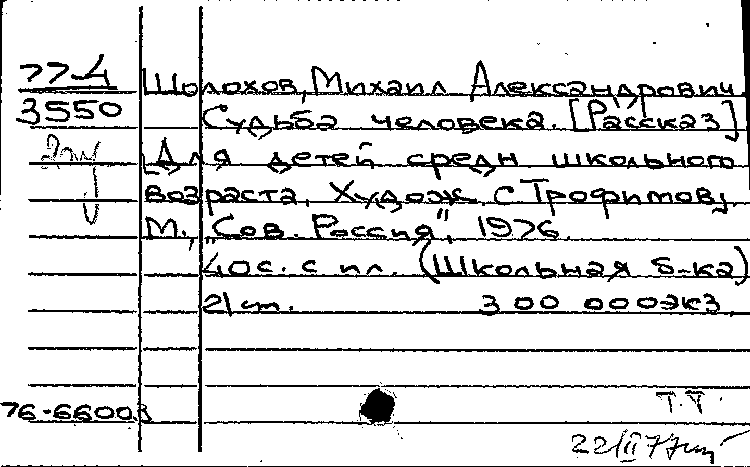 77-4 Шолохов, Михаил Александрович
3550 Судьба человека. [Рассказ]
[Для детей средн школьного
возраста. Худож. С Трофимов]
М., "Сов. Россия", 1976.
40с. с ил. (Школьная б-ка)
21 ст. 300 000 экз
76-66003
Т.Т.
22/II 77